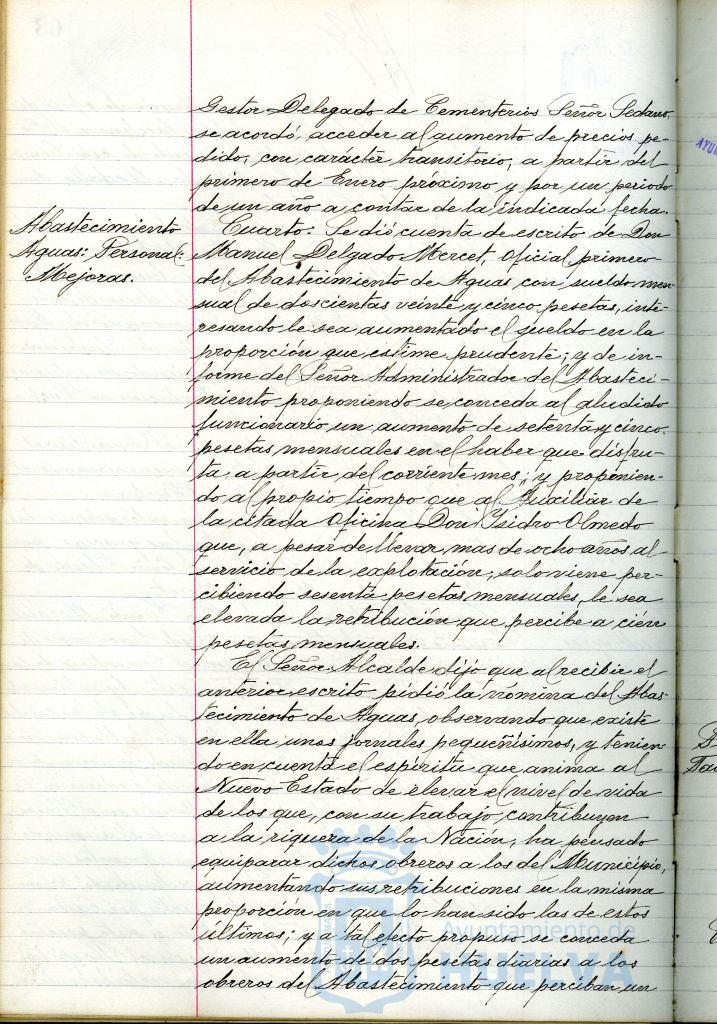 Gestor Delegado de Cementerios Señor Sedano,
se acordó, acceder al aumento de precios pe-
dido, con carácter transitorio, a partir del
primero de Enero próximo y por un periodo
de un año a contar de la indicada fecha.
Abastecimiento
Aguas: Personal:
Mejoras.
Cuarto. Se dió cuenta de escrito de Don
Manuel Delgado Mercet, Oficial primero
del Abastecimiento de Aguas, con sueldo men-
sual de doscientas veinte y cinco pesetas, inte-
resando le sea aumentado el sueldo en la
proporción que estime prudente; y de in-
forme del Señor Administrador del Abasteci-
miento proponiendo se conceda al aludido
funcionario un aumento de setenta y cinco
pesetas mensuales en el haber que disfru-
ta, a partir del corriente mes; y proponien-
do al propio tiempo que al Auxiliar de
la citada Oficina Don Ysidro Olmedo
que, a pesar de llevar mas de ocho años al
servicio de la explotación, solo viene per-
cibiendo sesenta pesetas mensuales, le sea
elevada la retribución que percibe a cien
pesetas mensuales.
El Señor Alcalde dijo que al recibir el
anterior escrito pidió la nómina del Abas-
tecimiento de Aguas, observando que existe
en ella unos jornales pequeñísimos, y tenien-
do en cuenta el espíritu que anima al
Nuevo Estado de elevar el nivel de vida
de los que, con su trabajo, contribuyen
a la riqueza de la Nación, ha pensado
equiparar dichos obreros a los del Municipio,
aumentando sus retribuciones en la misma
proporción en que lo han sido las de estos
últimos; y a tal efecto propuso se conceda
un aumento de dos pesetas diarias a los
obreros del Abastecimiento que perciban un
Ayuntamiento de
HUELVA